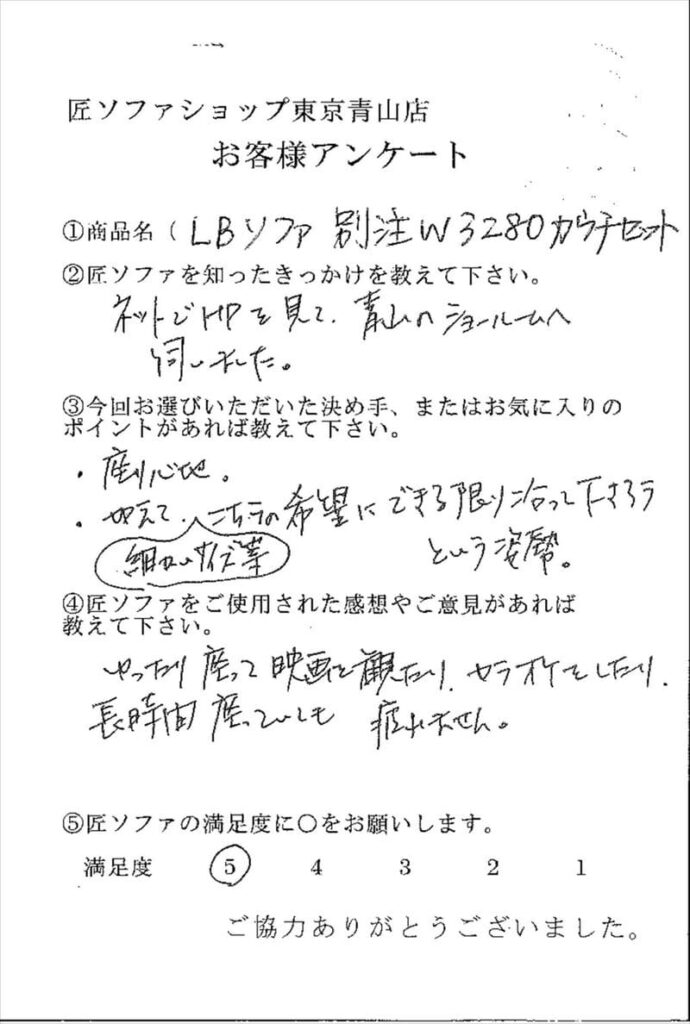 匠ソファショップ東京青山店
お客様アンケート
①商品名（ LBソファ 別注W3280カウチセット
②匠ソファを知ったきっかけを教えて下さい。
ネットでHPを見て、青山のショールームへ
伺いました。
③今回お選びいただいた決め手、またはお気に入りの
ポイントがあれば教えて下さい。
・座り心地。
・加えて、こちらの希望にできる限り沿って下さろう
細かいサイズ等
という姿勢。
④匠ソファをご使用された感想やご意見があれば
教えて下さい。
ゆったり座って映画を観たり、カラオケをしたり、
長時間座っていても 疲れません。
⑤匠ソファの満足度に○をお願いします。
満足度 5 4 3 2 1
ご協力ありがとうございました。